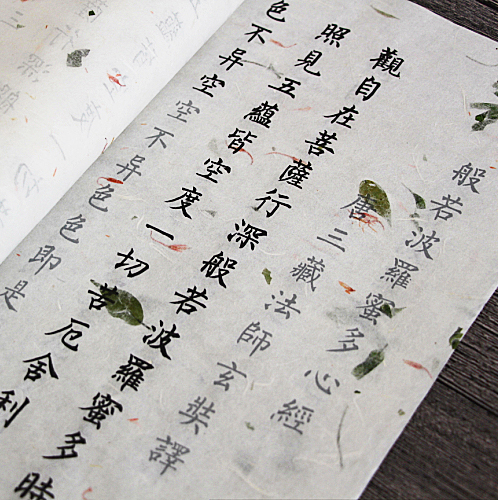 般若波羅蜜多心經
唐三藏法師玄奘譯
觀自在菩薩行深般若波羅蜜多時
照見五蘊皆空度一切苦厄舍利
色不异空空不异色色即是